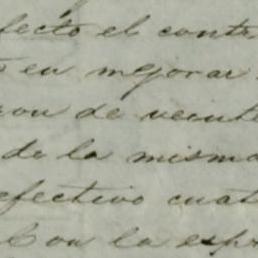 fecto el contr
en mejorar
ron de veinte
de la misma
efectivo cuat
Con la espr